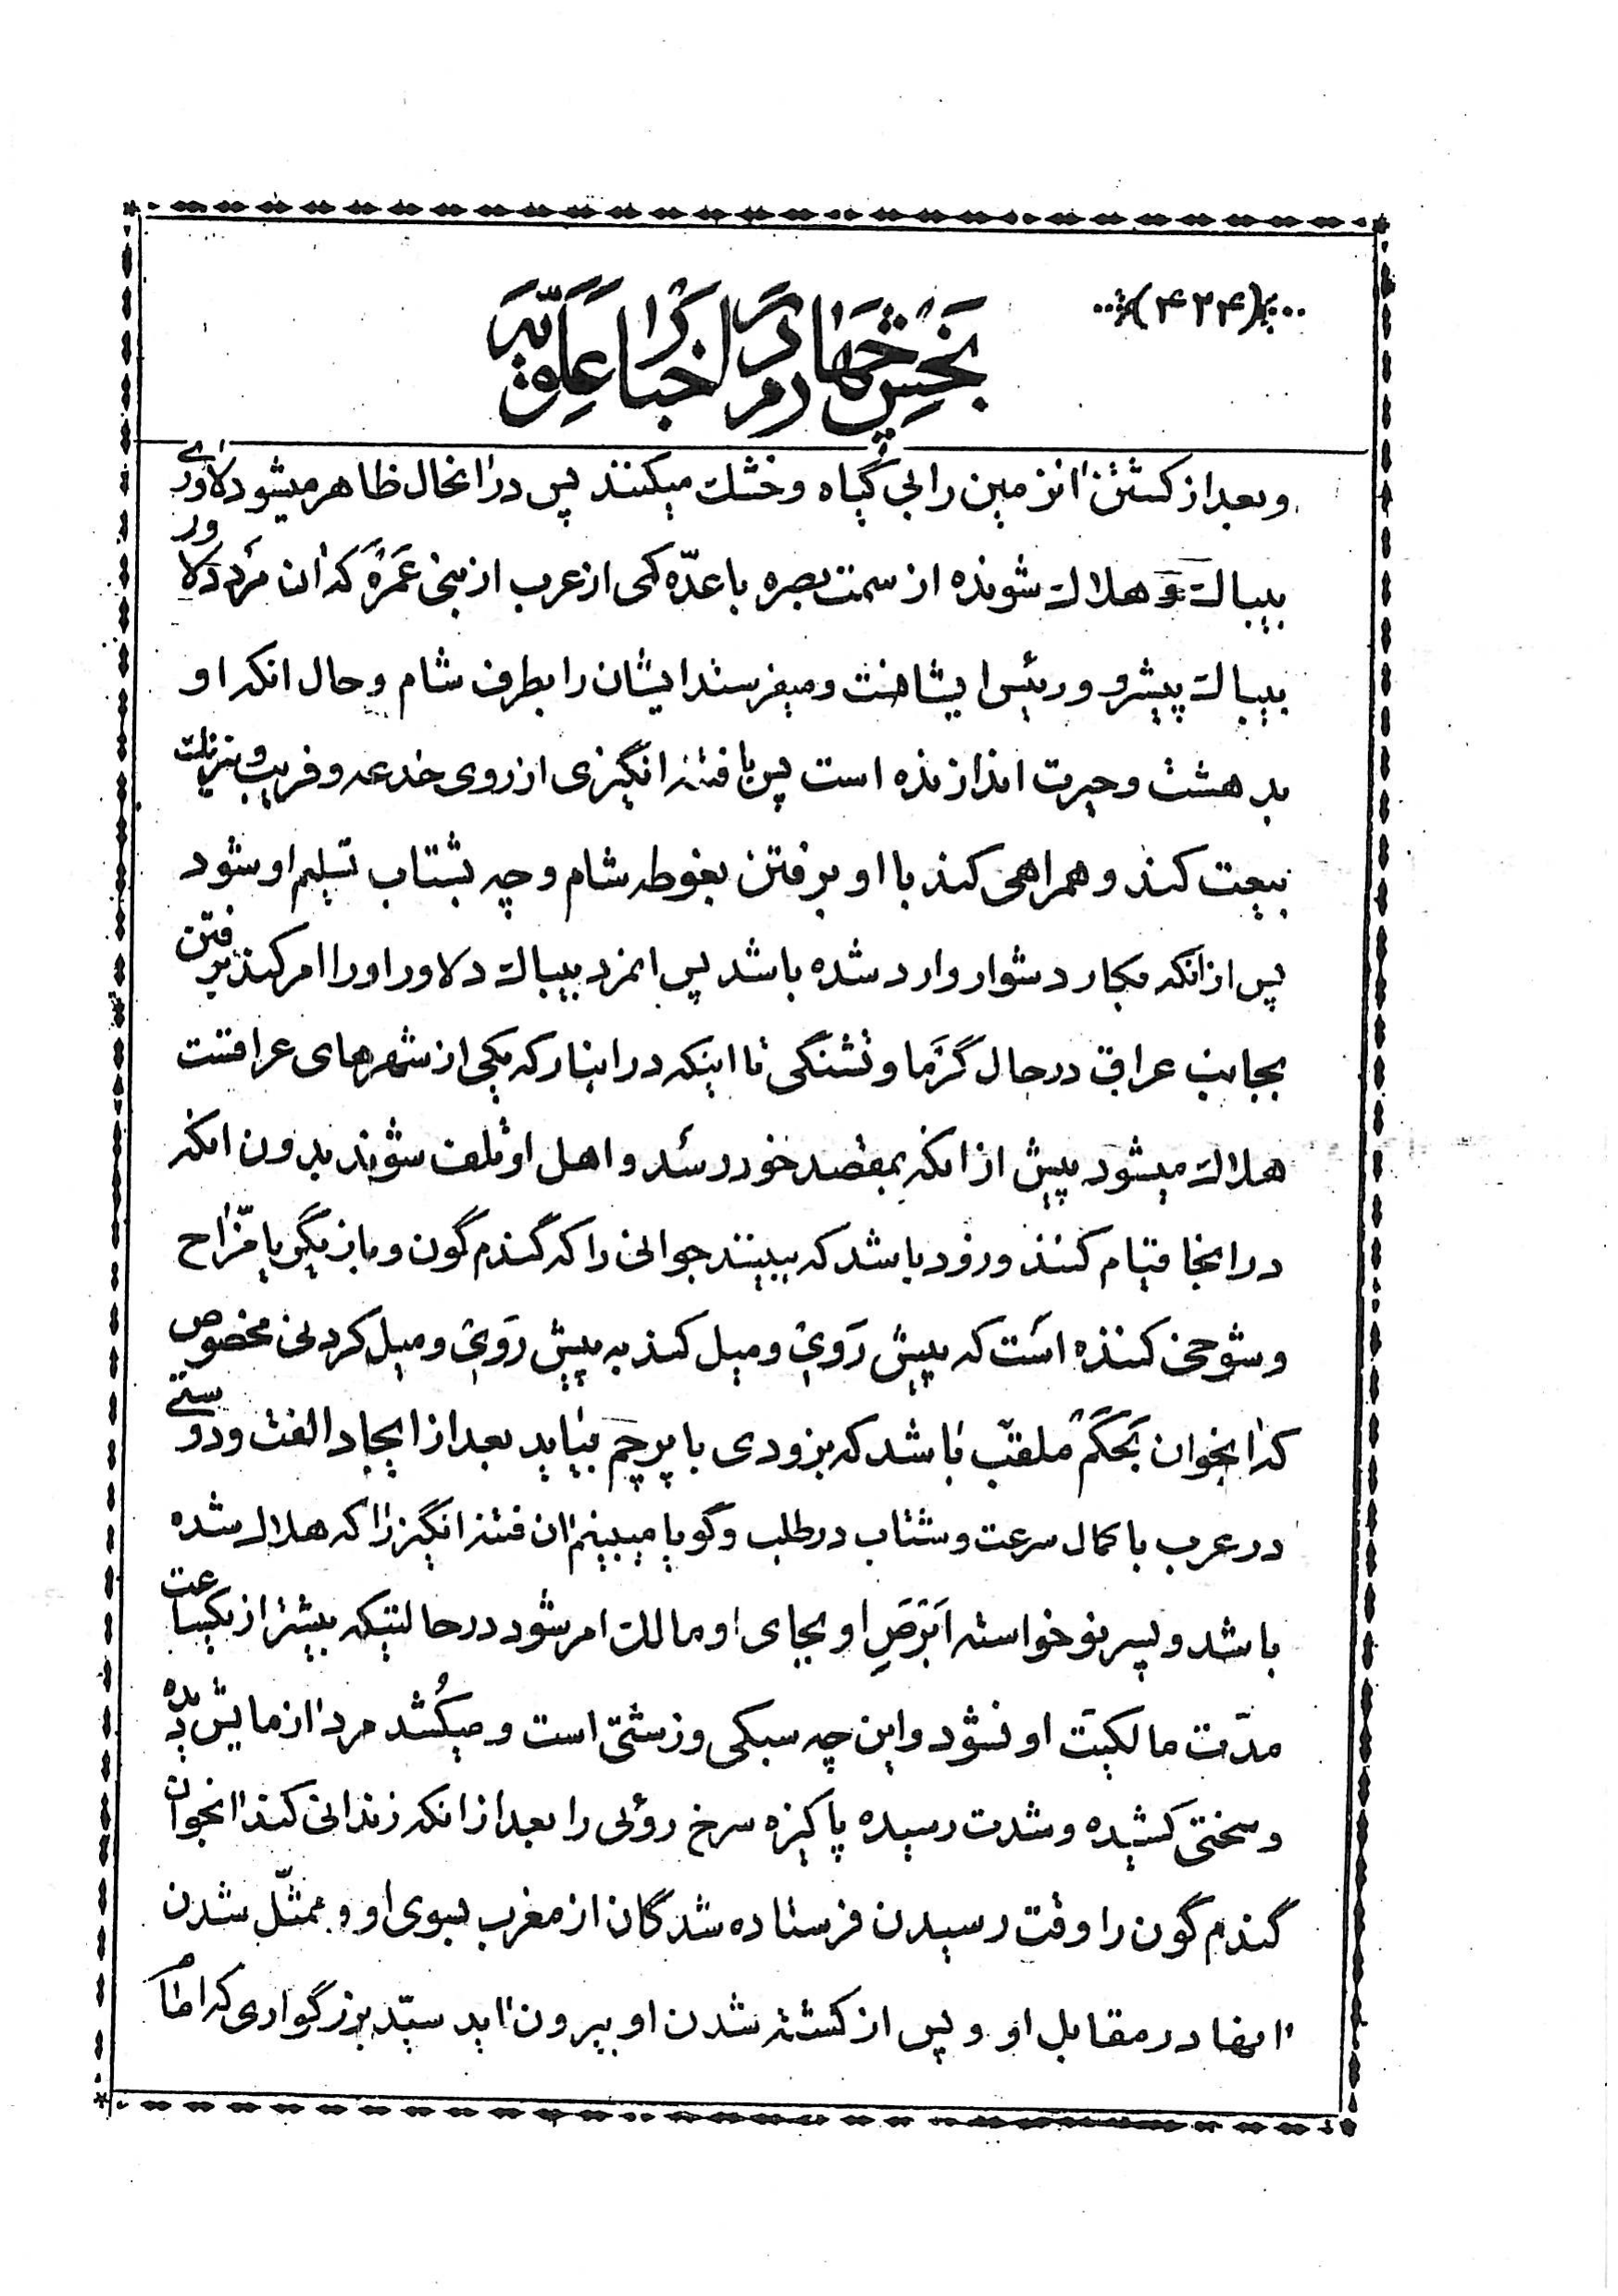 (۴۲۴)
بخش چهارم در اخبار علویّه
و بعد از کشتن آنزمین را بی گیاه و خشک میکنند پس در آنحال ظاهر میشود دلاوری
بیباک و هلاک شونده از سمت بصره با عدّه کمی از عرب از بنی عَمَرَه که آن مرد دلاور
بیباک پیشرو و رئیس ایشانست و میفرستد ایشان را بطرف شام و حال آنکه او
بدهشت و حیرت اندازنده است پس با فتنه انگیزی از روی خدعه و فریب و نیرنگ
بیعت کند و همراهی کند با او برفتن بغوطه شام و چه بشتاب تسلیم او شود
پس از آنکه بکار دشوار وارد شده باشد پس آنمرد بیباک دلاور او را امر کند برفتن
بجانب عراق در حال گرما و تشنگی تا اینکه در انبار که یکی از شهرهای عراقست
هلاک میشود پیش از آنکه بمقصد خود رسد و اهل او تلف شوند بدون آنکه
در آنجا قیام کنند و زود باشد که ببینند جوانی را که گندم گون و بازیگر یا مزّاح
و شوخی کننده است که پیش رَوی و میل کند به پیش رَوی و میل کردنی مخصوص
که آنجوان بَجکَم ملقّب باشد که بزودی با پرچم بیاید بعد از ایجاد الفت و دوستی
در عرب با کمال سرعت و شتاب در طلب و گویا میبینم آن فتنه انگیز را که هلاک شده
باشد و پسر نوخواسته اَبرَصِ او بجای او مالک امر شود در حالتیکه بیشتر از یکساعت
مدّت مالکیّت او نشود و این چه سبکی و زشتی است و میکُشد مرد آزمایش دیده
و سختی کشیده و شدت رسیده پاکیزه سرخ روئی را بعد از آنکه زندانی کند آنجوان
گندم گون را وقت رسیدن فرستاده شدگان از مغرب بسوی او و ممثّل شدن
آنها در مقابل او و پس از کشته شدن او بیرون آید سیّد بزرگواری که امام